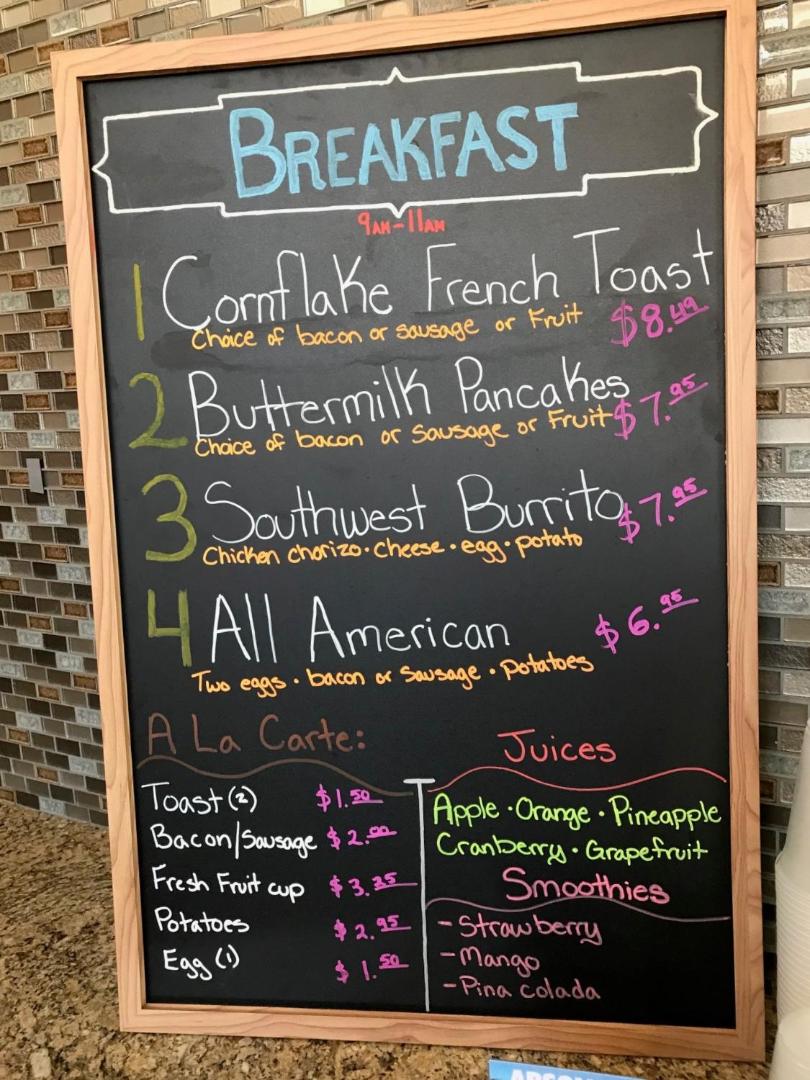 BREAKFAST
9AM-11AM
1 Cornflake French Toast
Choice of bacon or sausage or Fruit $8.49
2 Buttermilk Pancakes
Choice of bacon or Sausage or Fruit $7.95
3 Southwest Burrito $7.95
Chicken chorizo · cheese · egg · potato
4 All American $6.95
Two eggs · bacon or Sausage · potatoes
A La Carte:
Toast (2) $1.50
Bacon/Sausage $2.00
Fresh Fruit cup $3.25
Potatoes $2.95
Egg (1) $1.50
Juices
Apple · Orange · Pineapple
Cranberry · Grapefruit
Smoothies
- Strawberry
- Mango
- Pina colada